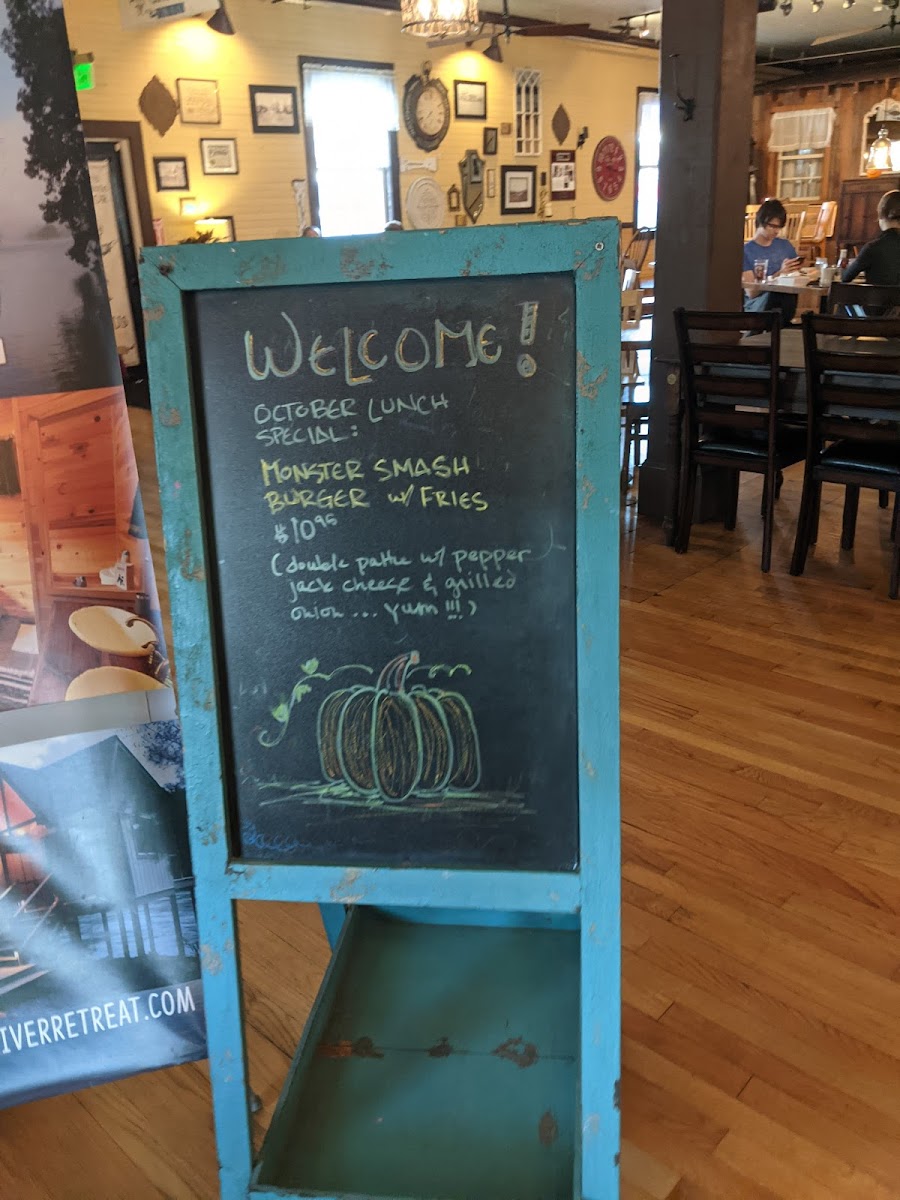 WELCOME!
OCTOBER LUNCH
SPECIAL:
MONSTER SMASH
BURGER w/ FRIES
$10 95
(double pattie w/ pepper
jack cheese & grilled
onion ... yum!!!)
IVERRETREAT.COM